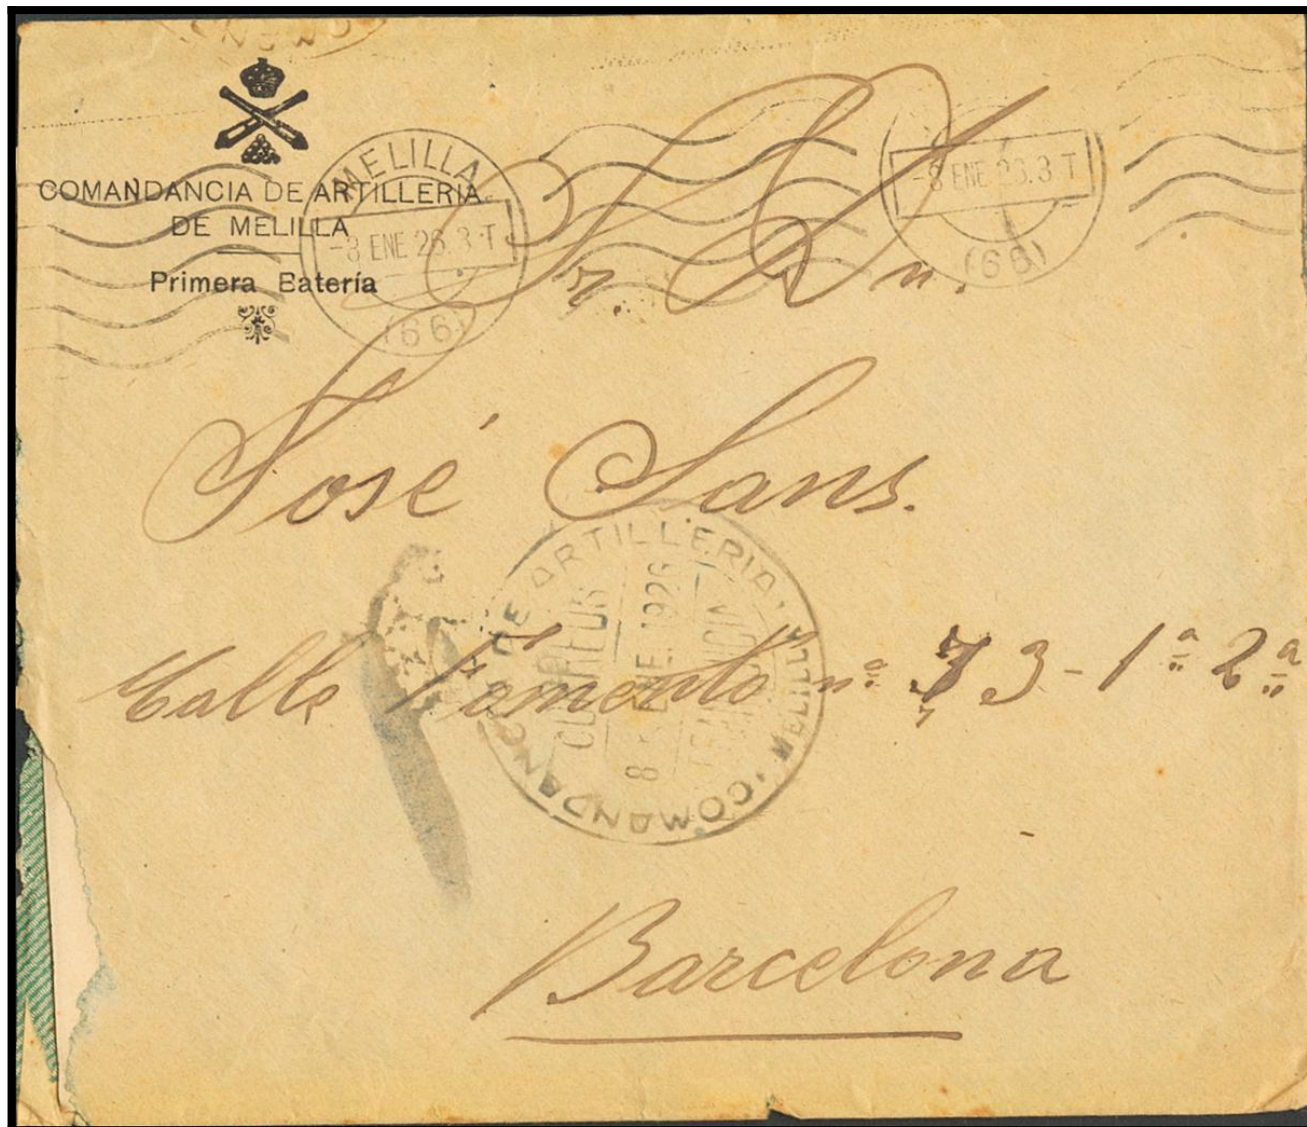 COMANDANCIA DE ARTILLERIA
DE MELILLA
Primera Batería
MELILLA
-8 ENE 26.3 T
(66)
-8 ENE 26.3 T
(66)
Sr. Dn.
José Sans.
COMANDANCIA DE ARTILLERIA · MELILLA ·
8 ENE. 1926
FRANQUICIA
Calle Fomento nº 73-1ª 2ª
Barcelona